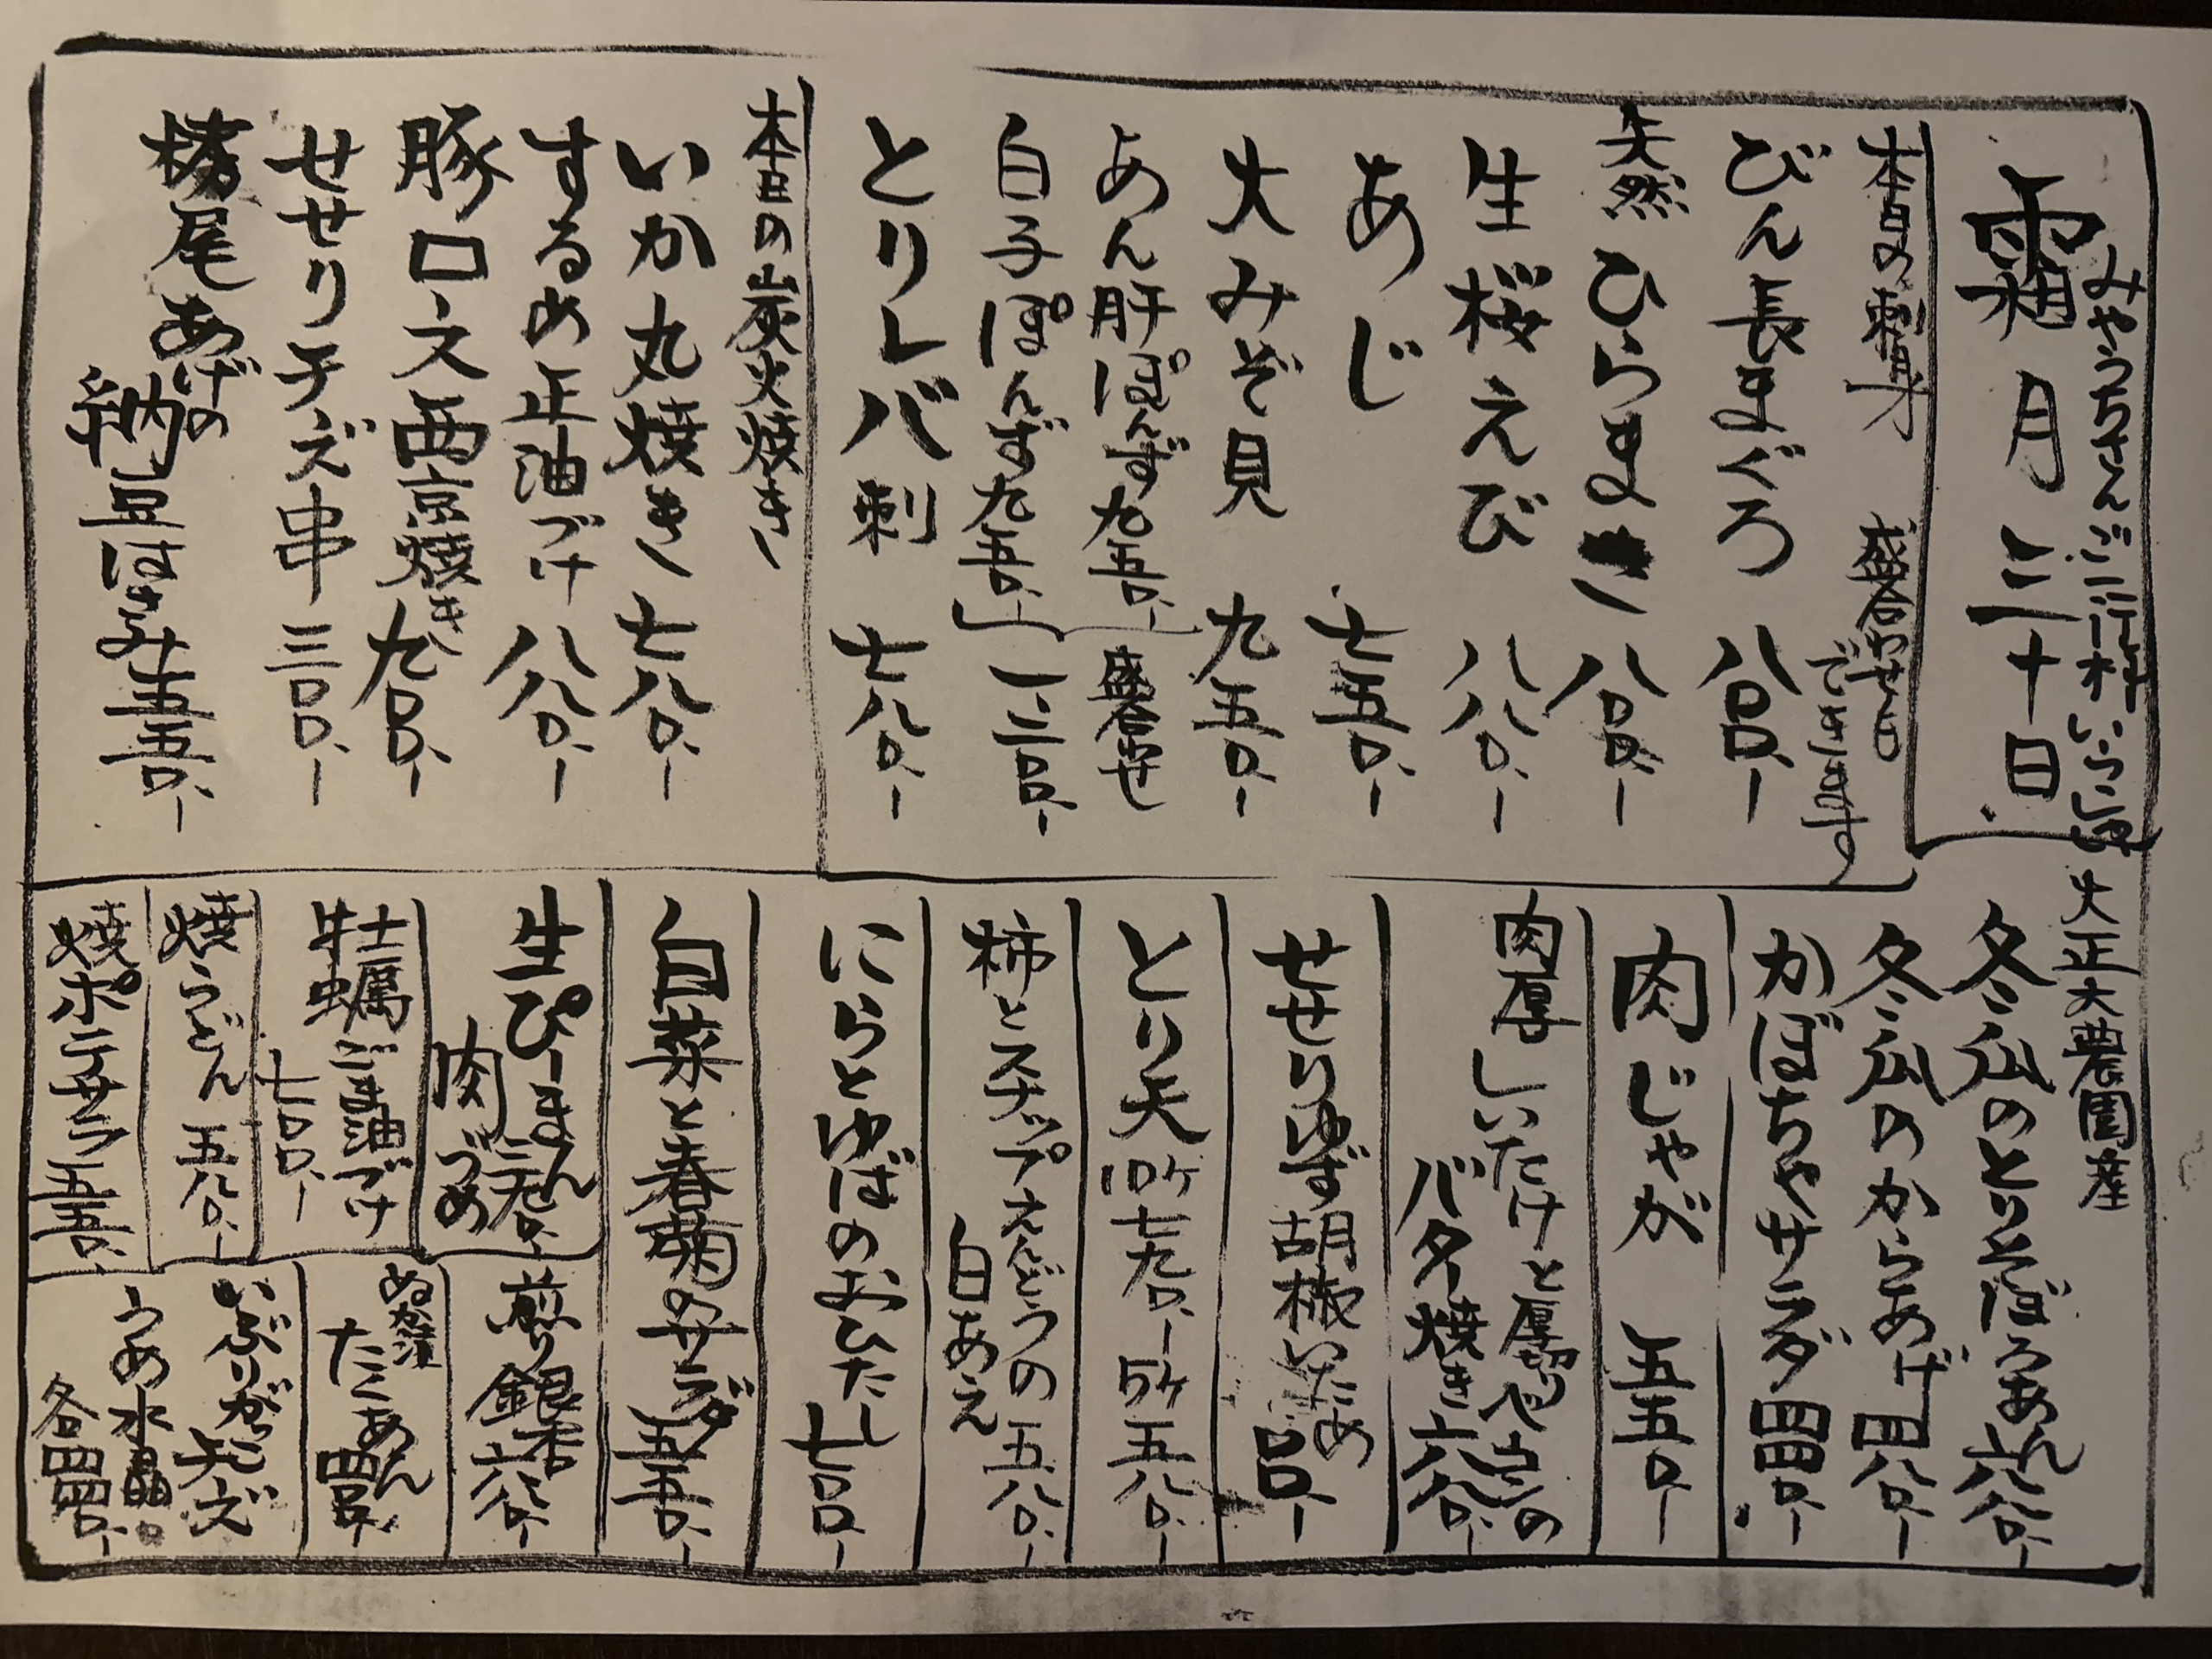 みやうちさんご一行様いらっしゃい
霜月三十日
本日の刺身 盛合わせも
できます
びん長まぐろ 八〇〇、ー
天然ひらまき 八〇〇、ー
生桜えび 八八〇、ー
あじ 七五〇、ー
大みぞ貝 九五〇、ー
あん肝ぽんず九五〇、ー
白子ぽんず九五〇、ー
盛合せ
一二〇〇、ー
とりレバ刺 七八〇、ー
本日の炭火焼き
いか丸焼き 七八〇、ー
するめ正油づけ 八八〇、ー
豚ロース西京焼き 九〇〇、ー
せせりチーズ串 三〇〇、ー
栃尾あげの
納豆はさみ 五五〇、ー
大正大農園産
冬瓜のとりそぼろあん 六八〇、ー
冬瓜のからあげ 四八〇、ー
かぼちゃサラダ 四四〇、ー
肉じゃが 五五〇、ー
肉厚しいたけと厚切ベーコンの
バター焼き 六八〇、ー
せせりゆず胡椒いため
とり天 10ヶ七九〇、ー 5ヶ五八〇、ー
柿とスナップえんどうの
白あえ 五八〇、ー
にらとゆばのおひたし 七〇〇、ー
白菜と春菊のサラダ 五五〇、ー
生ぴーまん
肉づめ
牡蠣ごま油づけ
七〇〇、ー
焼うどん 五八〇、ー
焼ポテサラ 五五〇、ー
煎り銀杏 六八〇、ー
ぬか漬
たくあん
いぶりがっこチーズ
うめ水晶
各四四〇、ー